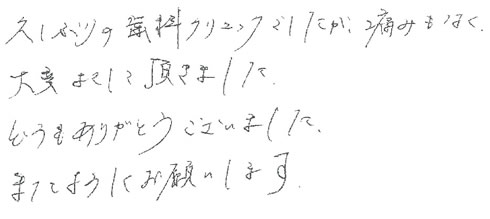 久しぶりの歯科クリニックでしたが、痛みもなく、
大変よくして頂きました。
どうもありがとうございました。
またよろしくお願いします。